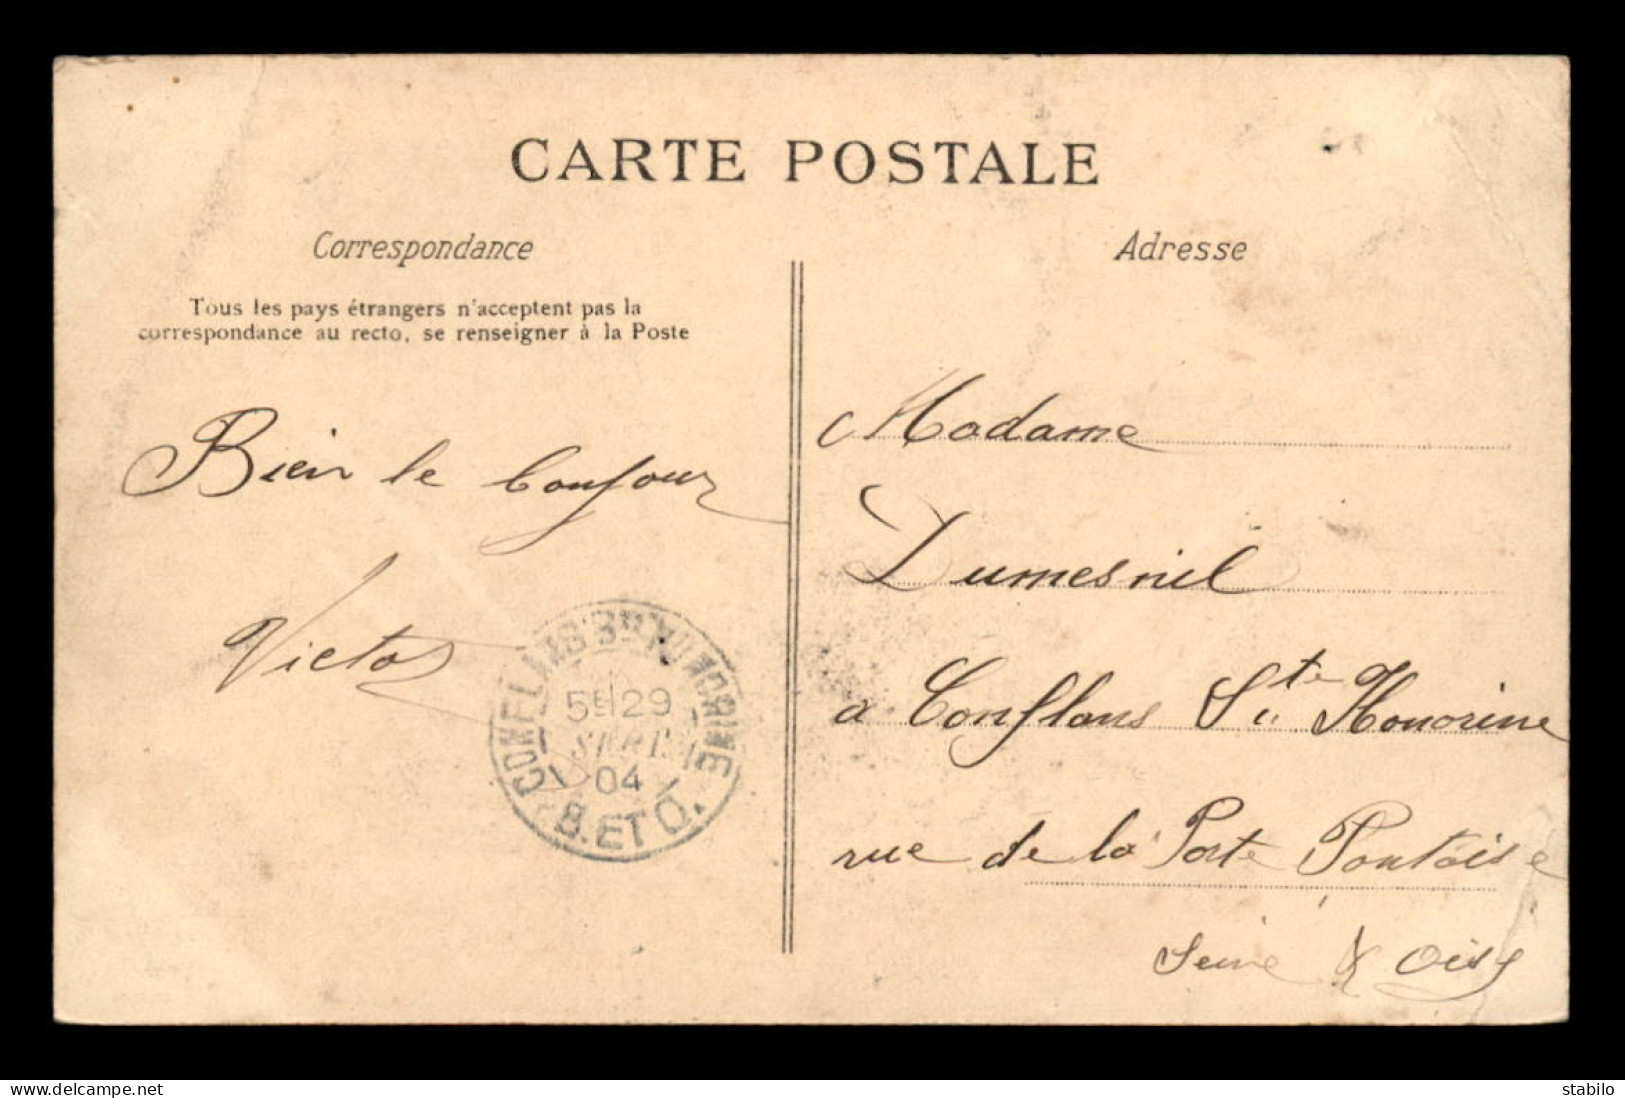 CARTE POSTALE
Correspondance
Tous les pays étrangers n'acceptent pas la
correspondance au recto, se renseigner à la Poste
Bien le bonjour
Victor
CONFLANS STE HONORINE
5E 29
SEPT
04
S. ET O.
Adresse
Madame
Dumesnil
à Conflans Ste Honorine
rue de la Porte Pontoise
Seine & Oise
delcampe.net
stabilo